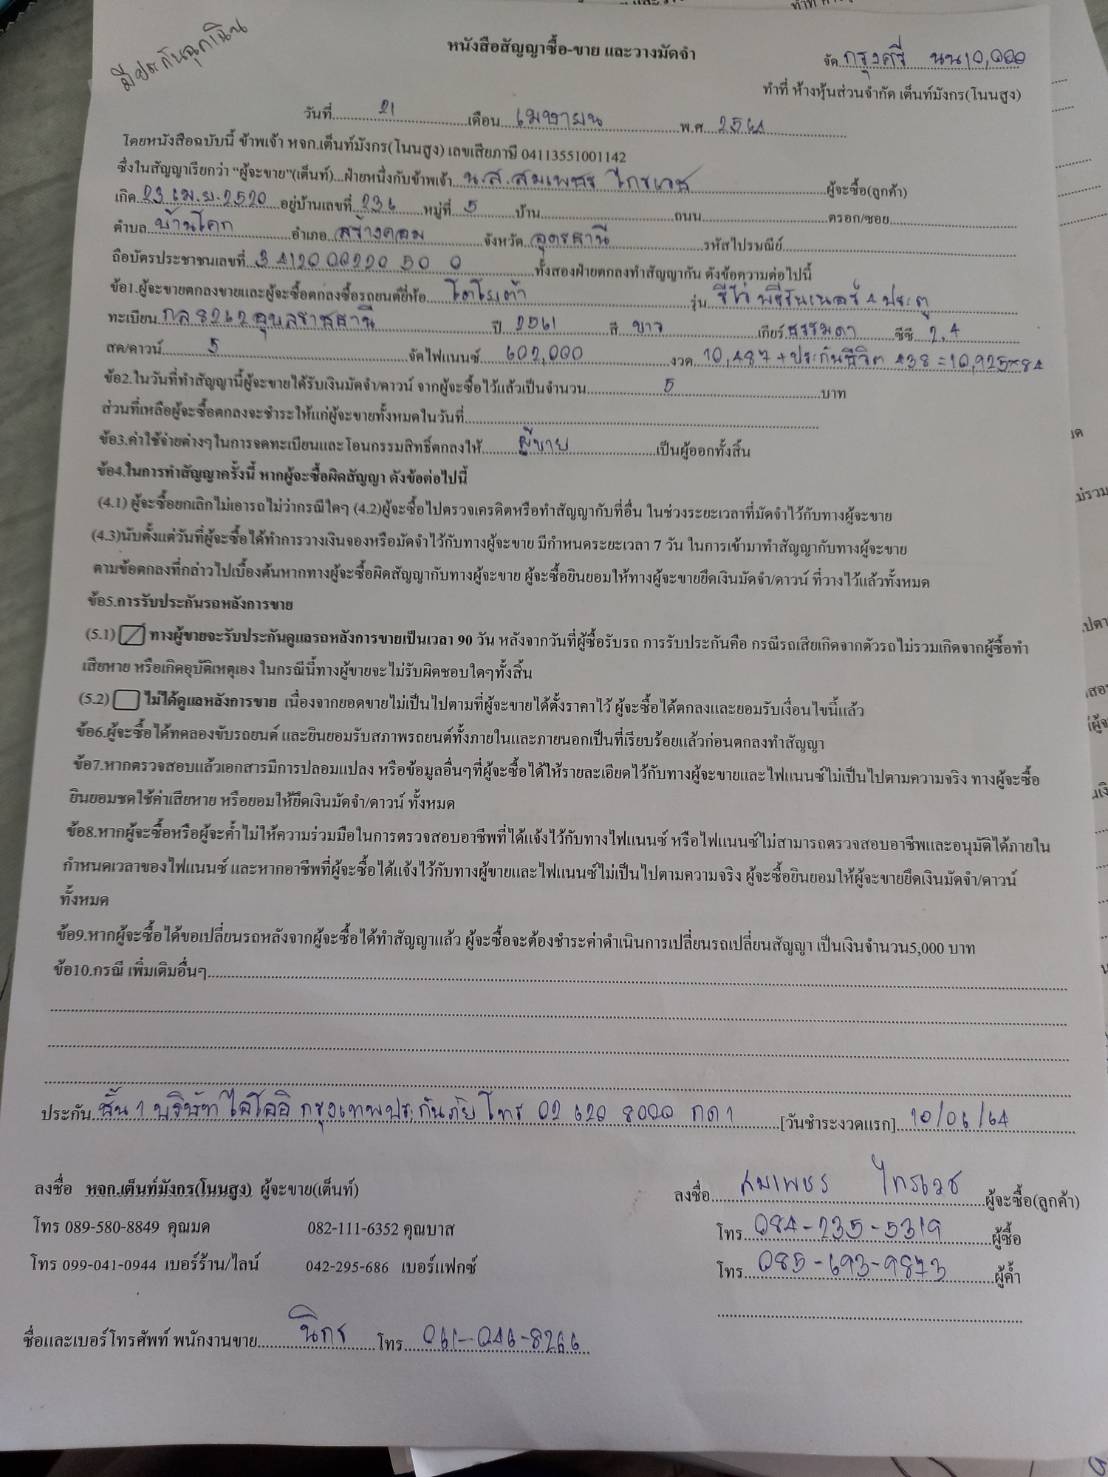 มีประกันฉุกเฉิน
หนังสือสัญญาซื้อ-ขาย และวางมัดจำ
จัด กรุงศรี นน10,000
ทำที่ ห้างหุ้นส่วนจำกัด เต็นท์มังกร(โนนสูง)
วันที่ 21 เดือน เมษายน พ.ศ. 2564
โดยหนังสือฉบับนี้ ข้าพเจ้า หจก.เต็นท์มังกร(โนนสูง) เลขเสียภาษี 04113551001142
ซึ่งในสัญญาเรียกว่า "ผู้จะขาย"(เต็นท์)...ฝ่ายหนึ่งกับข้าพเจ้า น.ส.สมเพชร ไกรเวช ผู้จะซื้อ(ลูกค้า)
เกิด 23 เม.ย.2520 อยู่บ้านเลขที่ 236 หมู่ที่ 5 บ้าน ถนน ตรอก/ซอย
ตำบล บ้านโคก อำเภอ สร้างคอม จังหวัด อุดรธานี รหัสไปรษณีย์
ถือบัตรประชาชนเลขที่ 3 4120 00220 50 0 ทั้งสองฝ่ายตกลงทำสัญญากัน ดังข้อความต่อไปนี้
ข้อ1.ผู้จะขายตกลงขายและผู้จะซื้อตกลงซื้อรถยนต์ยี่ห้อ โตโยต้า รุ่น รีโว่ พรีรันเนอร์ 4 ประตู
ทะเบียน กล8262อุบลราชธานี ปี 2561 สี ขาว เกียร์ ธรรมดา ซีซี 2.4
สด/ดาวน์ 5 จัดไฟแนนซ์ 602,000 งวด 10,487+ประกันชีวิต 438=10,925x84
ข้อ2.ในวันที่ทำสัญญานี้ผู้จะขายได้รับเงินมัดจำ/ดาวน์ จากผู้จะซื้อไว้แล้วเป็นจำนวน 5 บาท
ส่วนที่เหลือผู้จะซื้อตกลงจะชำระให้แก่ผู้จะขายทั้งหมดในวันที่
ข้อ3.ค่าใช้จ่ายต่างๆในการจดทะเบียนและโอนกรรมสิทธิ์ตกลงให้ ผู้ขาย เป็นผู้ออกทั้งสิ้น
ข้อ4.ในการทำสัญญาครั้งนี้ หากผู้จะซื้อผิดสัญญา ดังข้อต่อไปนี้
(4.1) ผู้จะซื้อยกเลิกไม่เอารถไม่ว่ากรณีใดๆ (4.2)ผู้จะซื้อไปตรวจเครดิตหรือทำสัญญากับที่อื่น ในช่วงระยะเวลาที่มัดจำไว้กับทางผู้จะขาย
(4.3)นับตั้งแต่วันที่ผู้จะซื้อได้ทำการวางเงินจองหรือมัดจำไว้กับทางผู้จะขาย มีกำหนดระยะเวลา 7 วัน ในการเข้ามาทำสัญญากับทางผู้จะขาย
ตามข้อตกลงที่กล่าวไปเบื้องต้นหากทางผู้จะซื้อผิดสัญญากับทางผู้จะขาย ผู้จะซื้อยินยอมให้ทางผู้จะขายยึดเงินมัดจำ/ดาวน์ ที่วางไว้แล้วทั้งหมด
ข้อ5.การรับประกันรถหลังการขาย
(5.1) ทางผู้ขายจะรับประกันดูแลรถหลังการขายเป็นเวลา 90 วัน หลังจากวันที่ผู้ซื้อรับรถ การรับประกันคือ กรณีรถเสียเกิดจากตัวรถไม่รวมเกิดจากผู้ซื้อทำ
เสียหาย หรือเกิดอุบัติเหตุเอง ในกรณีนี้ทางผู้ขายจะไม่รับผิดชอบใดๆทั้งสิ้น
(5.2) ไม่ได้ดูแลหลังการขาย เนื่องจากยอดขายไม่เป็นไปตามที่ผู้จะขายได้ตั้งราคาไว้ ผู้จะซื้อได้ตกลงและยอมรับเงื่อนไขนี้แล้ว
ข้อ6.ผู้จะซื้อได้ทดลองขับรถยนต์ และยินยอมรับสภาพรถยนต์ทั้งภายในและภายนอกเป็นที่เรียบร้อยแล้วก่อนตกลงทำสัญญา
ข้อ7.หากตรวจสอบแล้วเอกสารมีการปลอมแปลง หรือข้อมูลอื่นๆที่ผู้จะซื้อได้ให้รายละเอียดไว้กับทางผู้จะขายและไฟแนนซ์ไม่เป็นไปตามความจริง ทางผู้จะซื้อ
ยินยอมชดใช้ค่าเสียหาย หรือยอมให้ยึดเงินมัดจำ/ดาวน์ ทั้งหมด
ข้อ8.หากผู้จะซื้อหรือผู้จะค้ำไม่ให้ความร่วมมือในการตรวจสอบอาชีพที่ได้แจ้งไว้กับทางไฟแนนซ์ หรือไฟแนนซ์ไม่สามารถตรวจสอบอาชีพและอนุมัติได้ภายใน
กำหนดเวลาของไฟแนนซ์ และหากอาชีพที่ผู้จะซื้อได้แจ้งไว้กับทางผู้ขายและไฟแนนซ์ไม่เป็นไปตามความจริง ผู้จะซื้อยินยอมให้ผู้จะขายยึดเงินมัดจำ/ดาวน์
ทั้งหมด
ข้อ9.หากผู้จะซื้อได้ขอเปลี่ยนรถหลังจากผู้จะซื้อได้ทำสัญญาแล้ว ผู้จะซื้อจะต้องชำระค่าดำเนินการเปลี่ยนรถเปลี่ยนสัญญา เป็นเงินจำนวน5,000 บาท
ข้อ10.กรณี เพิ่มเติมอื่นๆ
ประกัน ชั้น 1 บริษัท ไอโออิ กรุงเทพประกันภัย โทร 02 620 8000 กด 1 [วันชำระงวดแรก] 10/06/64
ลงชื่อ หจก.เต็นท์มังกร(โนนสูง) ผู้จะขาย(เต็นท์)
ลงชื่อ สมเพชร ไกรเวช ผู้จะซื้อ(ลูกค้า)
โทร 089-580-8849 คุณมด 082-111-6352 คุณบาส
โทร 084-235-5319 ผู้ซื้อ
โทร 099-041-0944 เบอร์ร้าน/ไลน์ 042-295-686 เบอร์แฟกซ์
โทร 085-693-9873 ผู้ค้ำ
ชื่อและเบอร์โทรศัพท์ พนักงานขาย นิกร โทร 061-046-8266